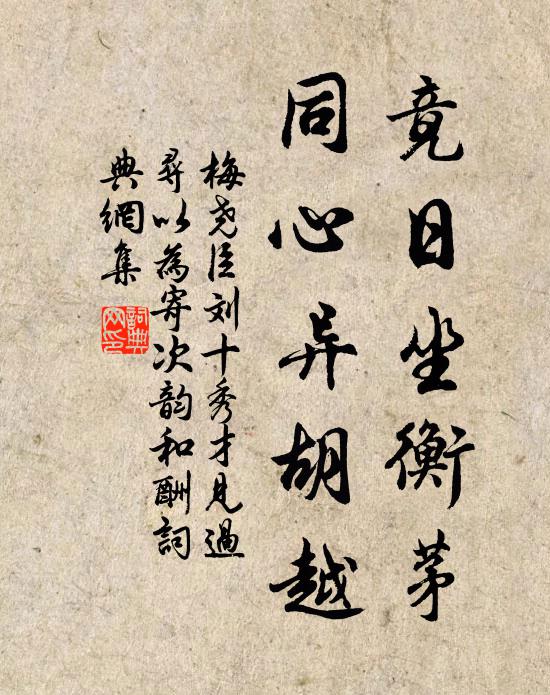 竟日坐衡茅
同心异胡越
梅尧臣刘十秀才见過
尋以為寄次韵和酬詞
典網集
詞典
网印